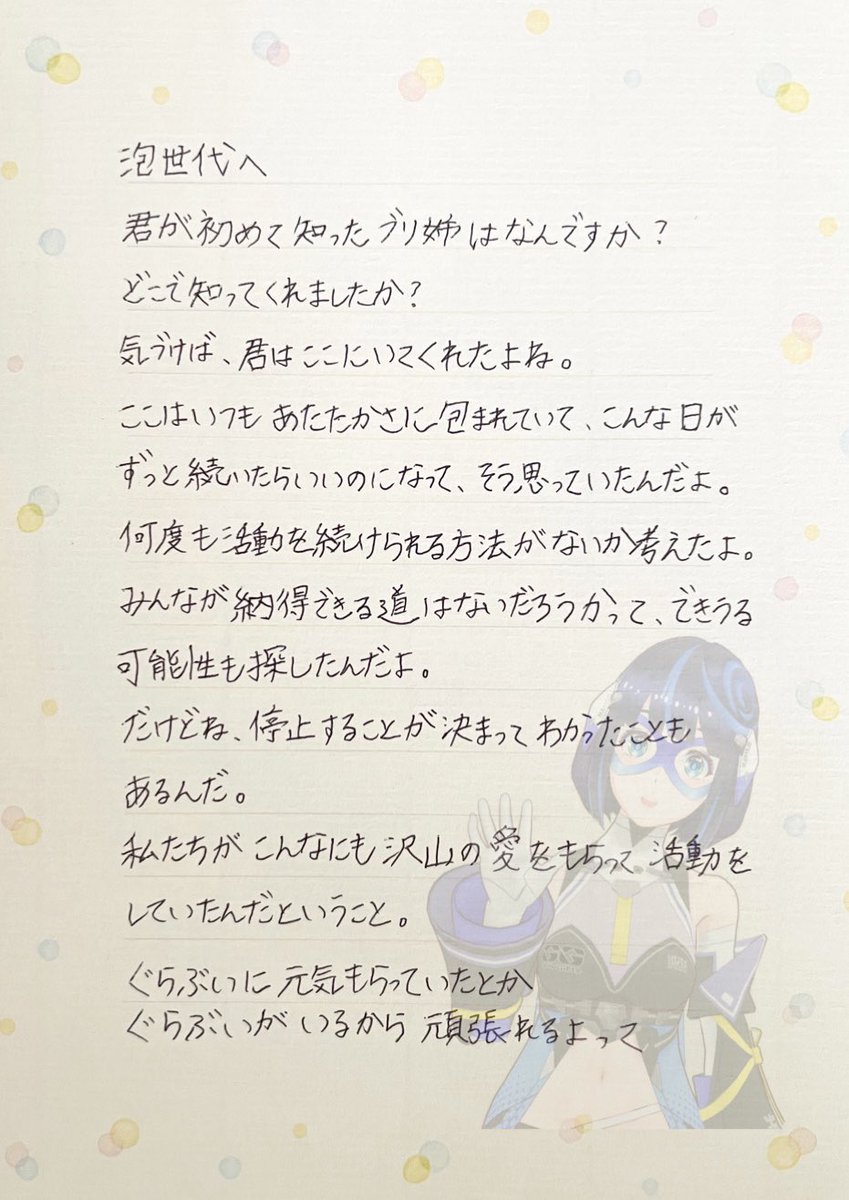 泡世代へ
君が初めて知ったブリ姉はなんですか?
どこで知ってくれましたか?
気づけば、君はここにいてくれたよね。
ここはいつもあたたかさに包まれていて、こんな日が
ずっと続いたらいいのになって、そう思っていたんだよ。
何度も活動を続けられる方法がないか考えたよ。
みんなが納得できる道はないだろうかって、できうる
可能性も探したんだよ。
だけどね、停止することが決まってわかったことも
あるんだ。
私たちがこんなにも沢山の愛をもらって活動を
していたんだということ。
ぐらぶいに元気もらっていたとか
ぐらぶいがいるから頑張れるよって